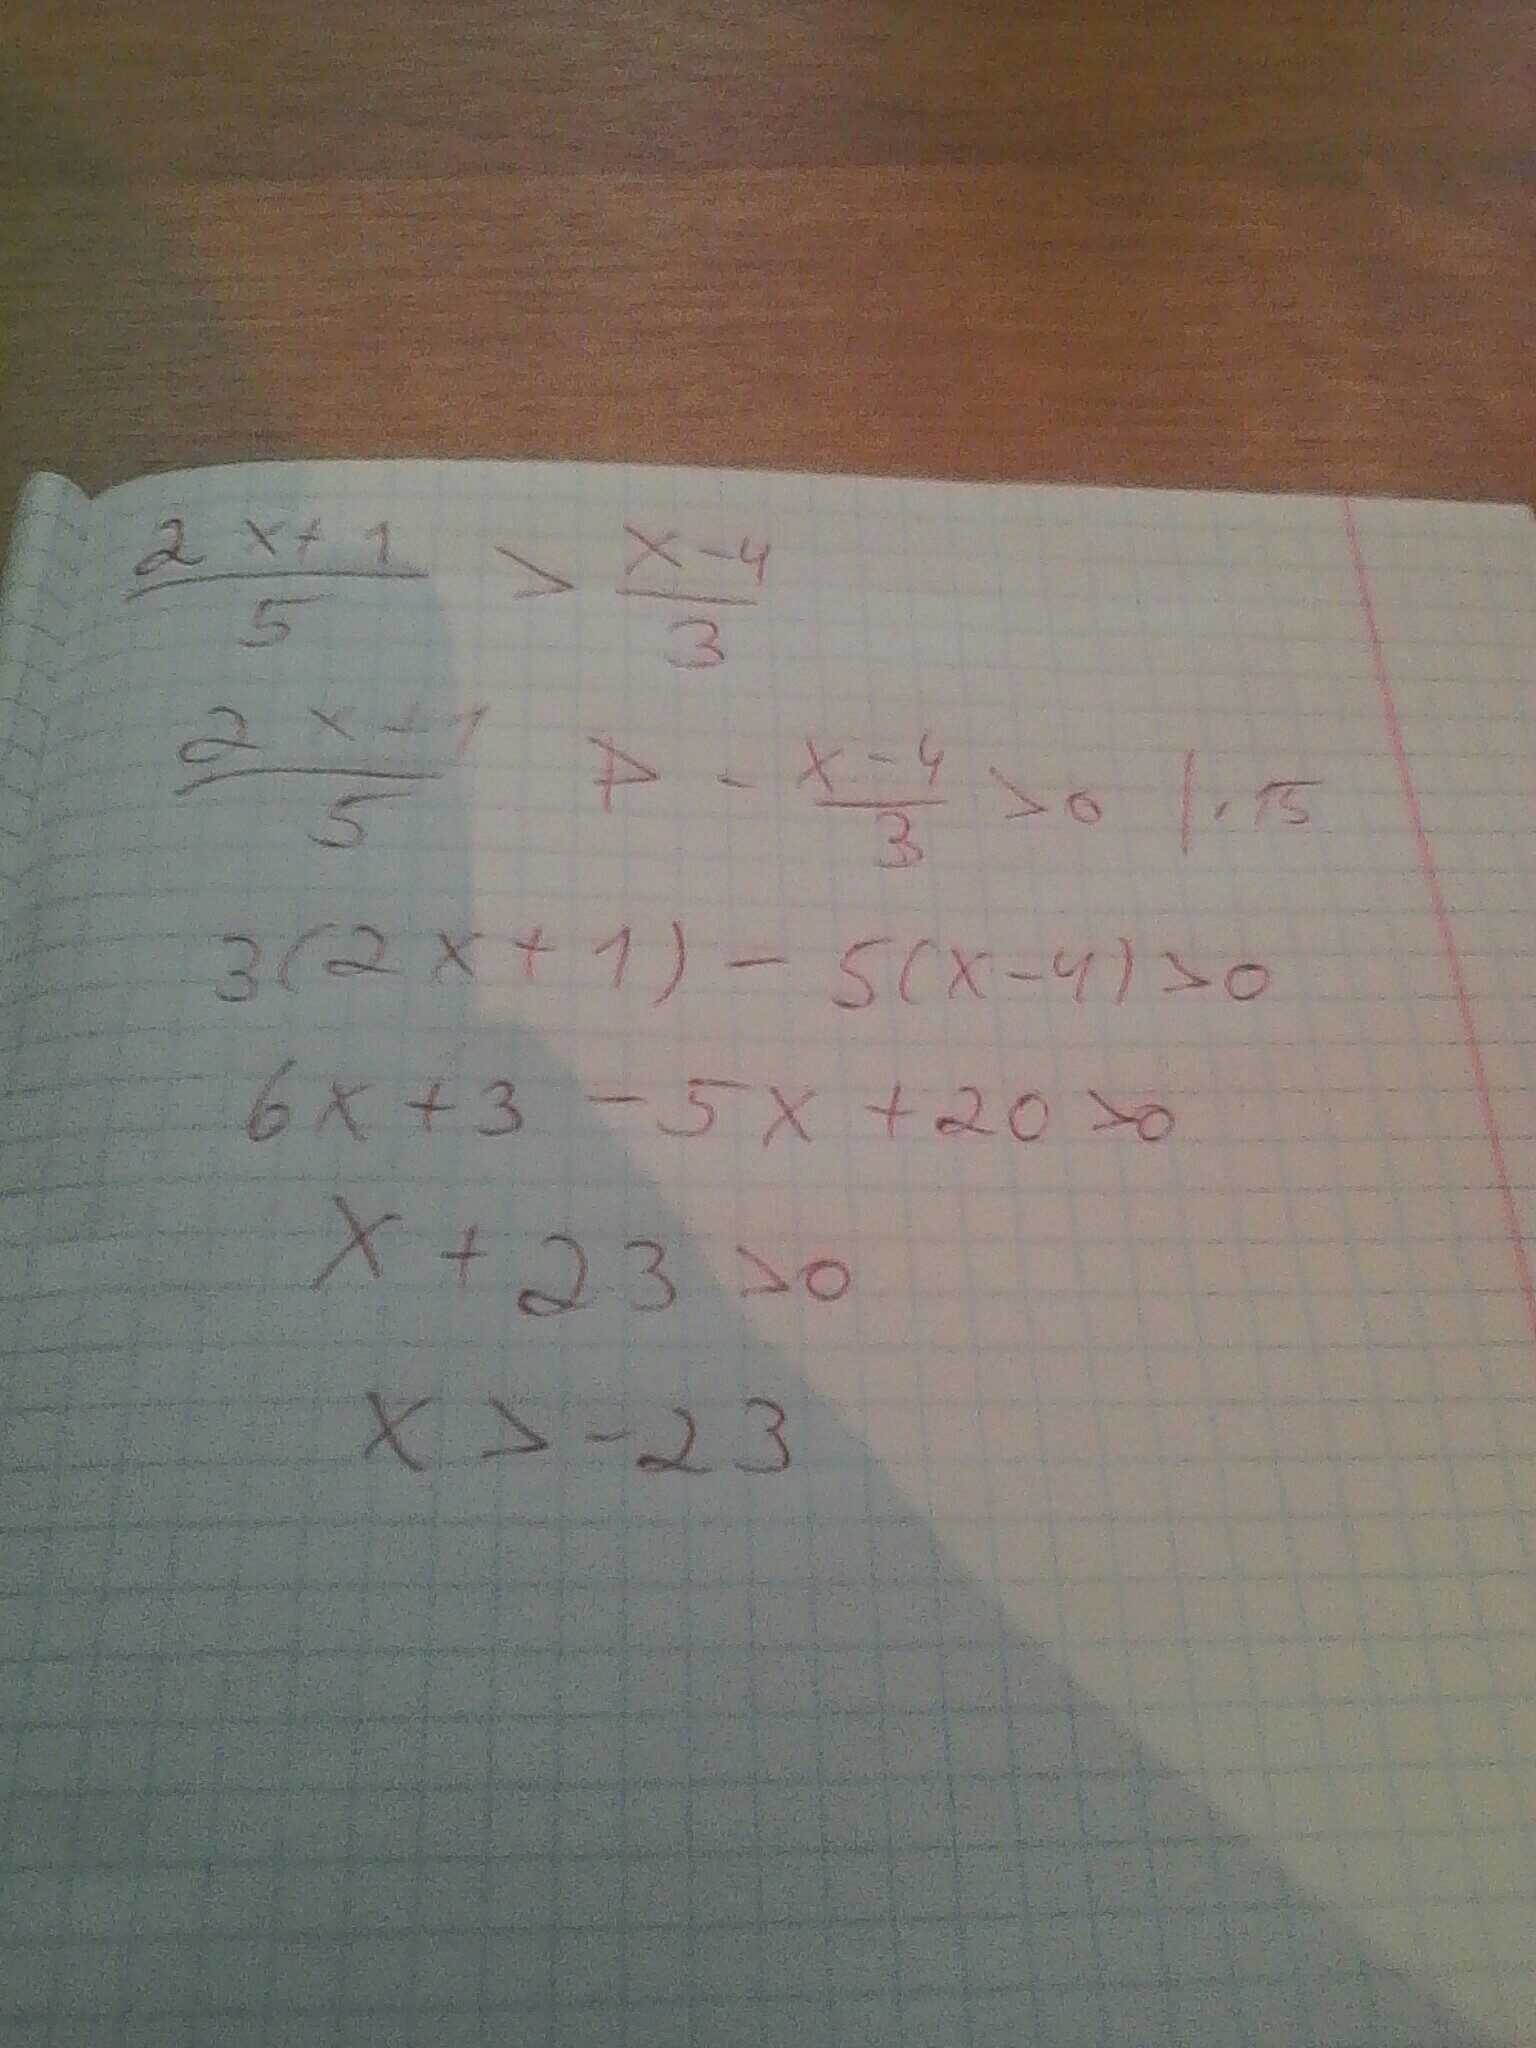 (2x+1)/5 > (x-4)/3
(2x+1)/5 > - (x-4)/3 >0 | · 15
3(2x+1) - 5(x-4) >0
6x+3 -5x +20 >0
x + 23 >0
x > -23